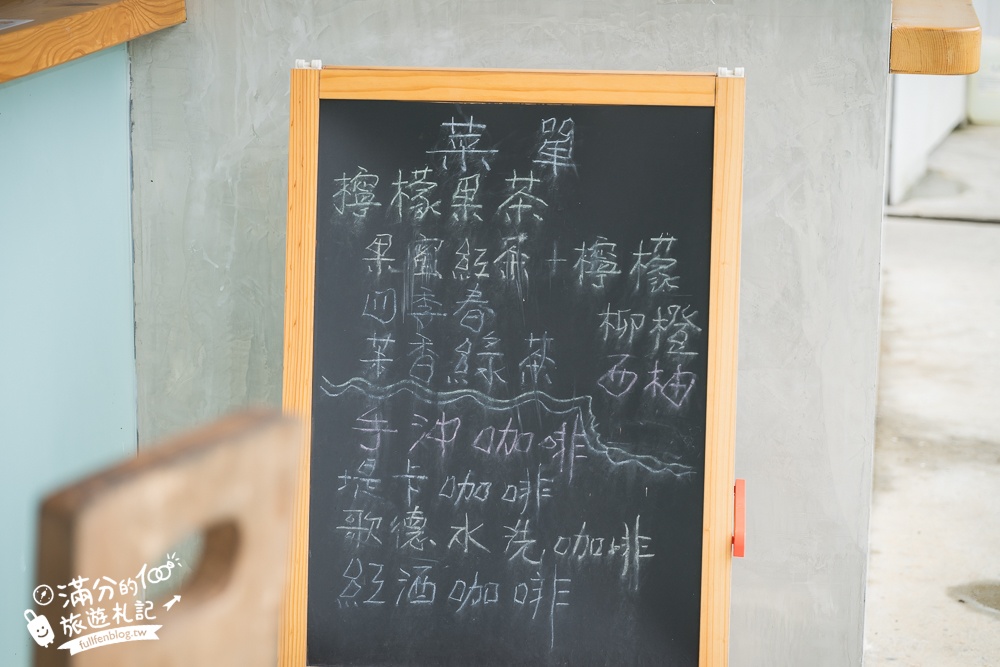 菜單
檸檬果茶
果蜜紅茶+檸檬
四季春 柳橙
茉香綠茶 西柚
手沖咖啡
堤卡咖啡
歌德水洗咖啡
紅酒咖啡
滿分的
旅遊札記
fullfenblog.tw